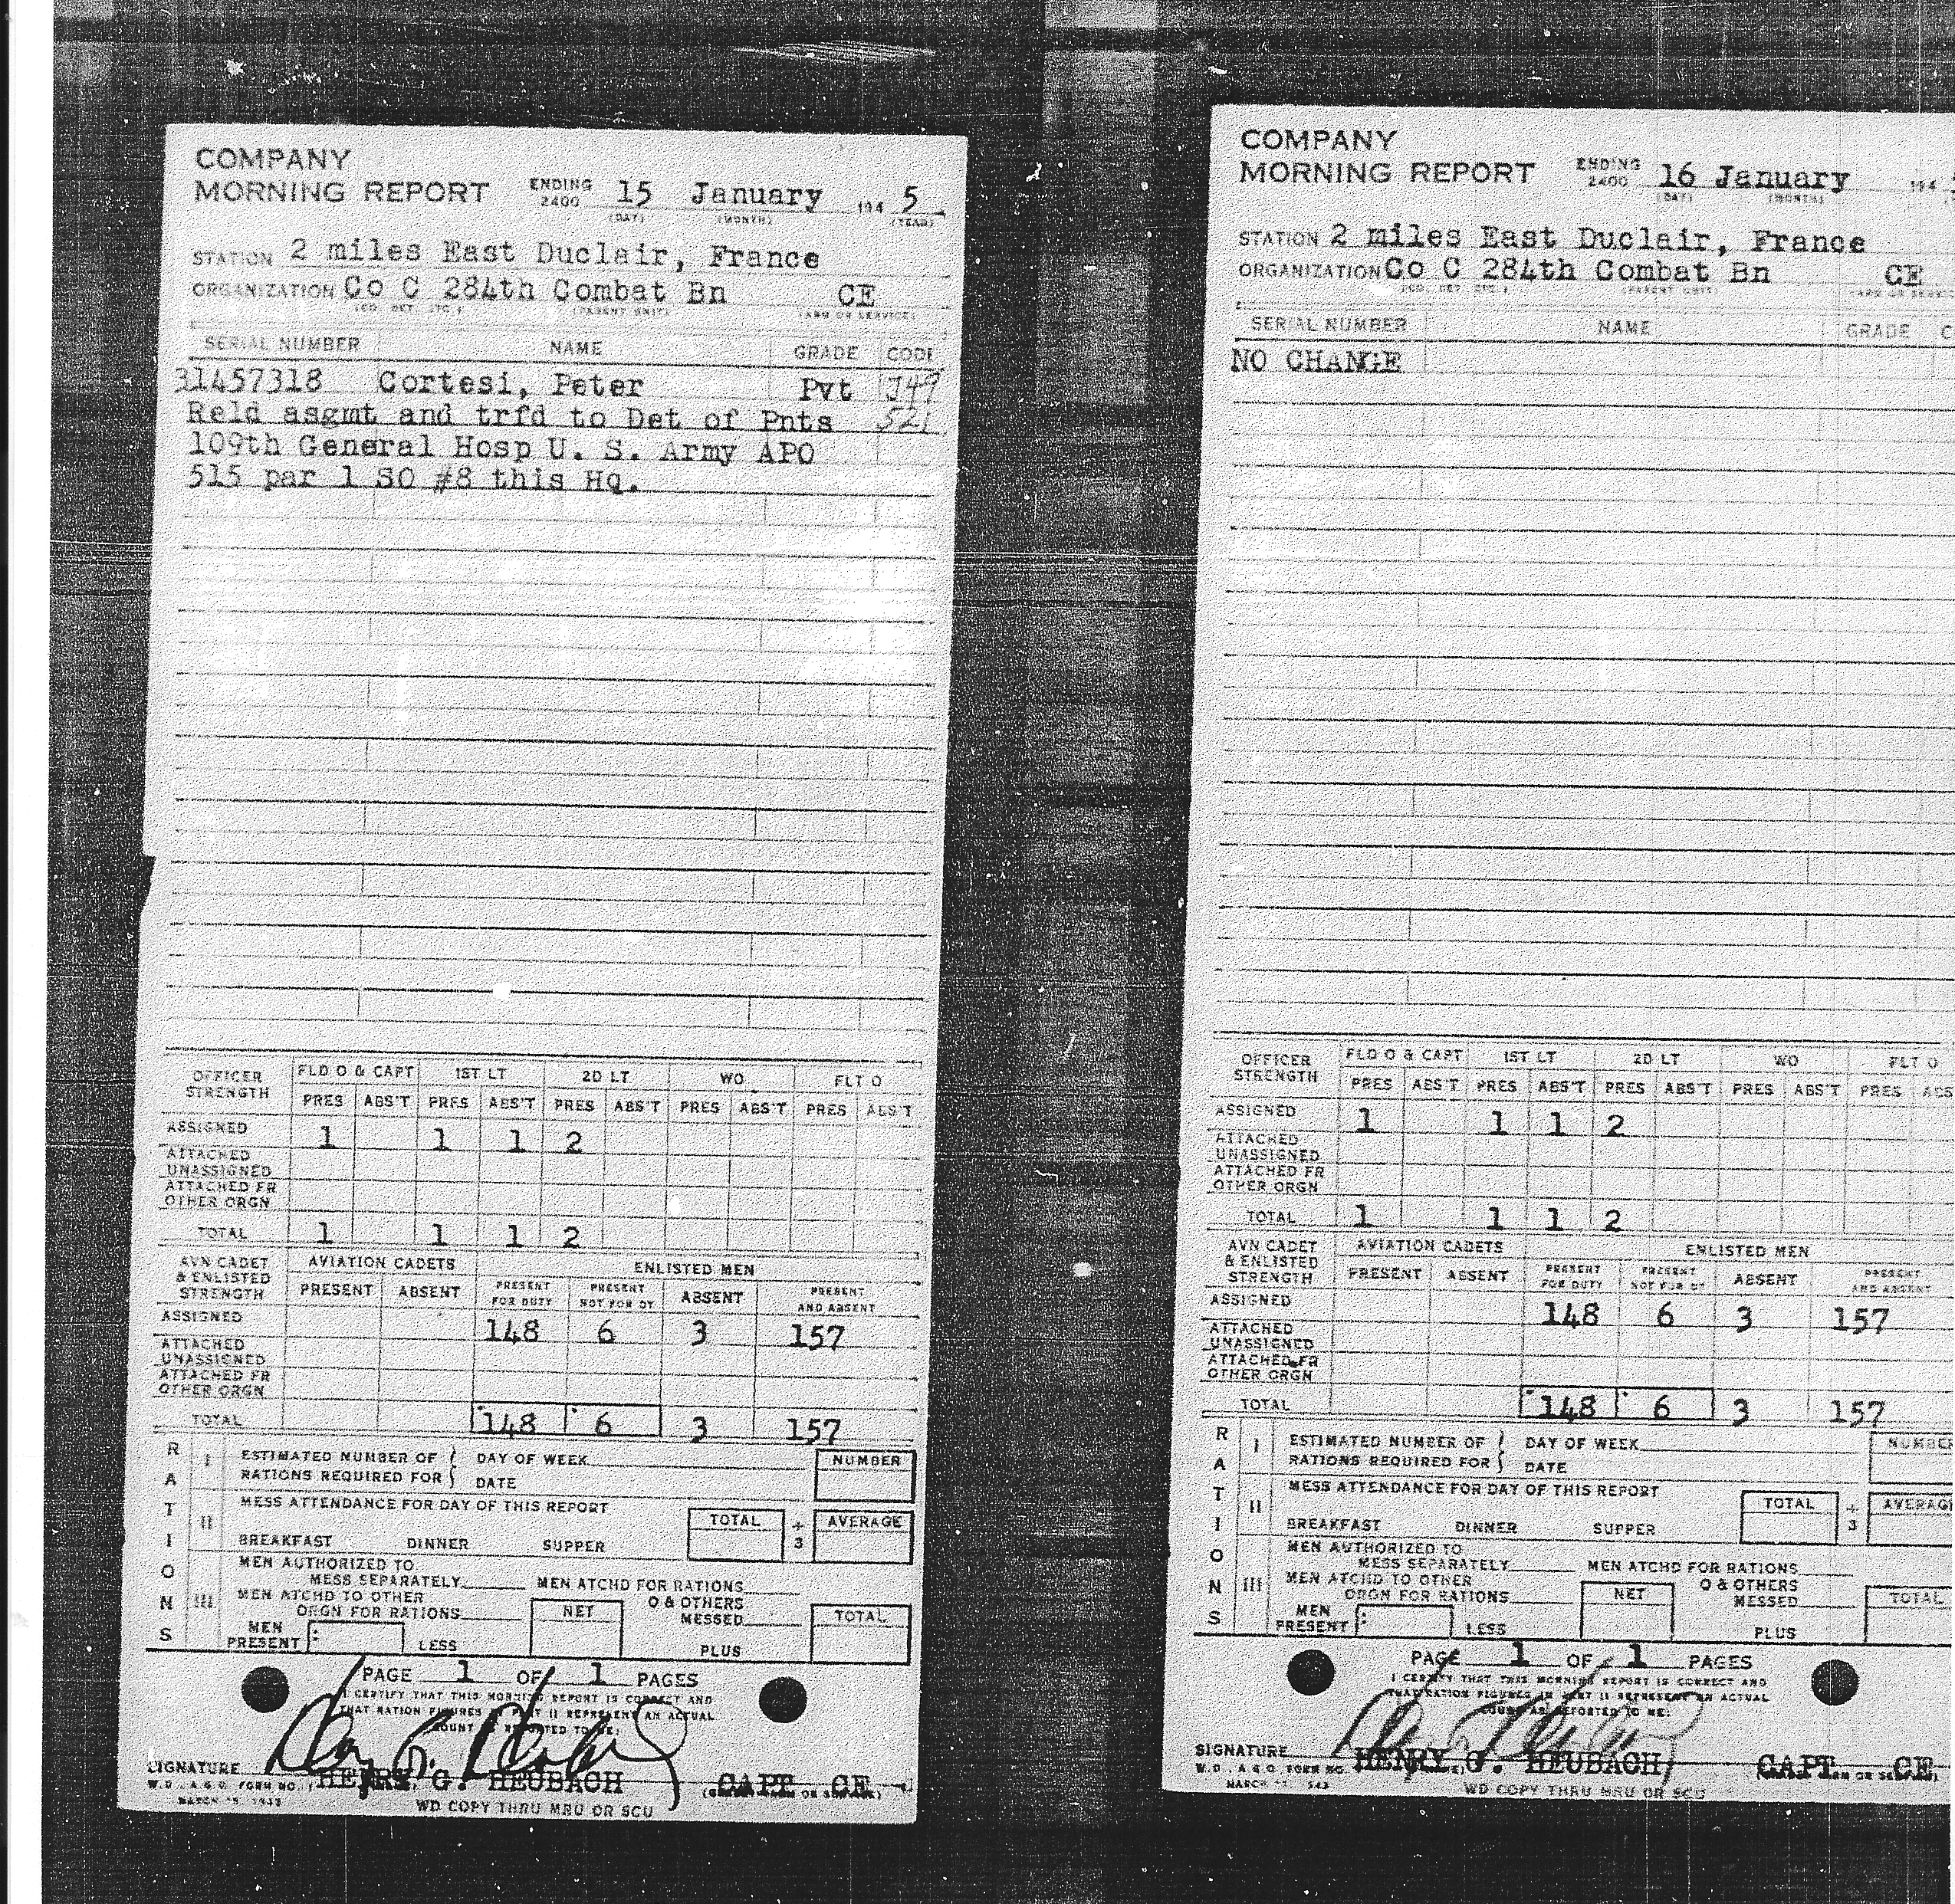 COMPANY
MORNING REPORT ENDING 2400 15 January 194 5
(DAY) (MONTH) (YEAR)
STATION 2 miles East Duclair, France
ORGANIZATION Co C 284th Combat Bn CE
(CO, DET, ETC.) (PARENT UNIT) (ARM OR SERVICE)
SERIAL NUMBER NAME GRADE CODE
31457318 Cortesi, Peter Pvt J49
Reld asgmt and trfd to Det of Pnts 521
109th General Hosp U. S. Army APO
515 par 1 SO #8 this Hq.
OFFICER STRENGTH FLD O & CAPT 1ST LT 2D LT WO FLT O
PRES ABS'T PRES ABS'T PRES ABS'T PRES ABS'T PRES ABS'T
ASSIGNED 1 1 1 2
ATTACHED UNASSIGNED
ATTACHED FR OTHER ORGN
TOTAL 1 1 1 2
AVN CADET & ENLISTED STRENGTH AVIATION CADETS ENLISTED MEN
PRESENT ABSENT PRESENT FOR DUTY PRESENT NOT FOR DY ABSENT PRESENT AND ABSENT
ASSIGNED 148 6 3 157
ATTACHED UNASSIGNED
ATTACHED FR OTHER ORGN
TOTAL 148 6 3 157
RATIONS
I ESTIMATED NUMBER OF DAY OF WEEK NUMBER
RATIONS REQUIRED FOR DATE
II MESS ATTENDANCE FOR DAY OF THIS REPORT
TOTAL ÷ 3 AVERAGE
BREAKFAST DINNER SUPPER
III MEN AUTHORIZED TO
MESS SEPARATELY MEN ATCHD FOR RATIONS
MEN ATCHD TO OTHER O & OTHERS
ORGN FOR RATIONS NET MESSED TOTAL
MEN PRESENT : LESS PLUS
PAGE 1 OF 1 PAGES
I CERTIFY THAT THIS MORNING REPORT IS CORRECT AND
THAT RATION FIGURES IN PART II REPRESENT AN ACTUAL
COUNT AS REPORTED TO ME:
SIGNATURE HENRY G. HEUBACH CAPT CE
W.D., A.G.O. FORM NO. 1
MARCH 1943
WD COPY THRU MRU OR SCU
COMPANY
MORNING REPORT ENDING 2400 16 January 194
(DAY) (MONTH)
STATION 2 miles East Duclair, France
ORGANIZATION Co C 284th Combat Bn CE
(CO, DET, ETC.) (PARENT UNIT) (ARM OR SERVICE
SERIAL NUMBER NAME GRADE C
NO CHANGE
OFFICER STRENGTH FLD O & CAPT 1ST LT 2D LT WO FLT O
PRES ABS'T PRES ABS'T PRES ABS'T PRES ABS'T PRES ABS
ASSIGNED 1 1 1 2
ATTACHED UNASSIGNED
ATTACHED FR OTHER ORGN
TOTAL 1 1 1 2
AVN CADET & ENLISTED STRENGTH AVIATION CADETS ENLISTED MEN
PRESENT ABSENT PRESENT FOR DUTY PRESENT NOT FOR DY ABSENT PRESENT AND ABSENT
ASSIGNED 148 6 3 157
ATTACHED UNASSIGNED
ATTACHED FR OTHER ORGN
TOTAL 148 6 3 157
RATIONS
I ESTIMATED NUMBER OF DAY OF WEEK NUMBER
RATIONS REQUIRED FOR DATE
II MESS ATTENDANCE FOR DAY OF THIS REPORT
TOTAL ÷ 3 AVERAG
BREAKFAST DINNER SUPPER
III MEN AUTHORIZED TO
MESS SEPARATELY MEN ATCHD FOR RATIONS
MEN ATCHD TO OTHER O & OTHERS
ORGN FOR RATIONS NET MESSED TOTAL
MEN PRESENT : LESS PLUS
PAGE 1 OF 1 PAGES
I CERTIFY THAT THIS MORNING REPORT IS CORRECT AND
THAT RATION FIGURES IN PART II REPRESENT AN ACTUAL
COUNT AS REPORTED TO ME:
SIGNATURE HENRY G. HEUBACH CAPT CE
W.D., A.G.O. FORM NO.
MARCH
WD COPY THRU MRU OR SCU